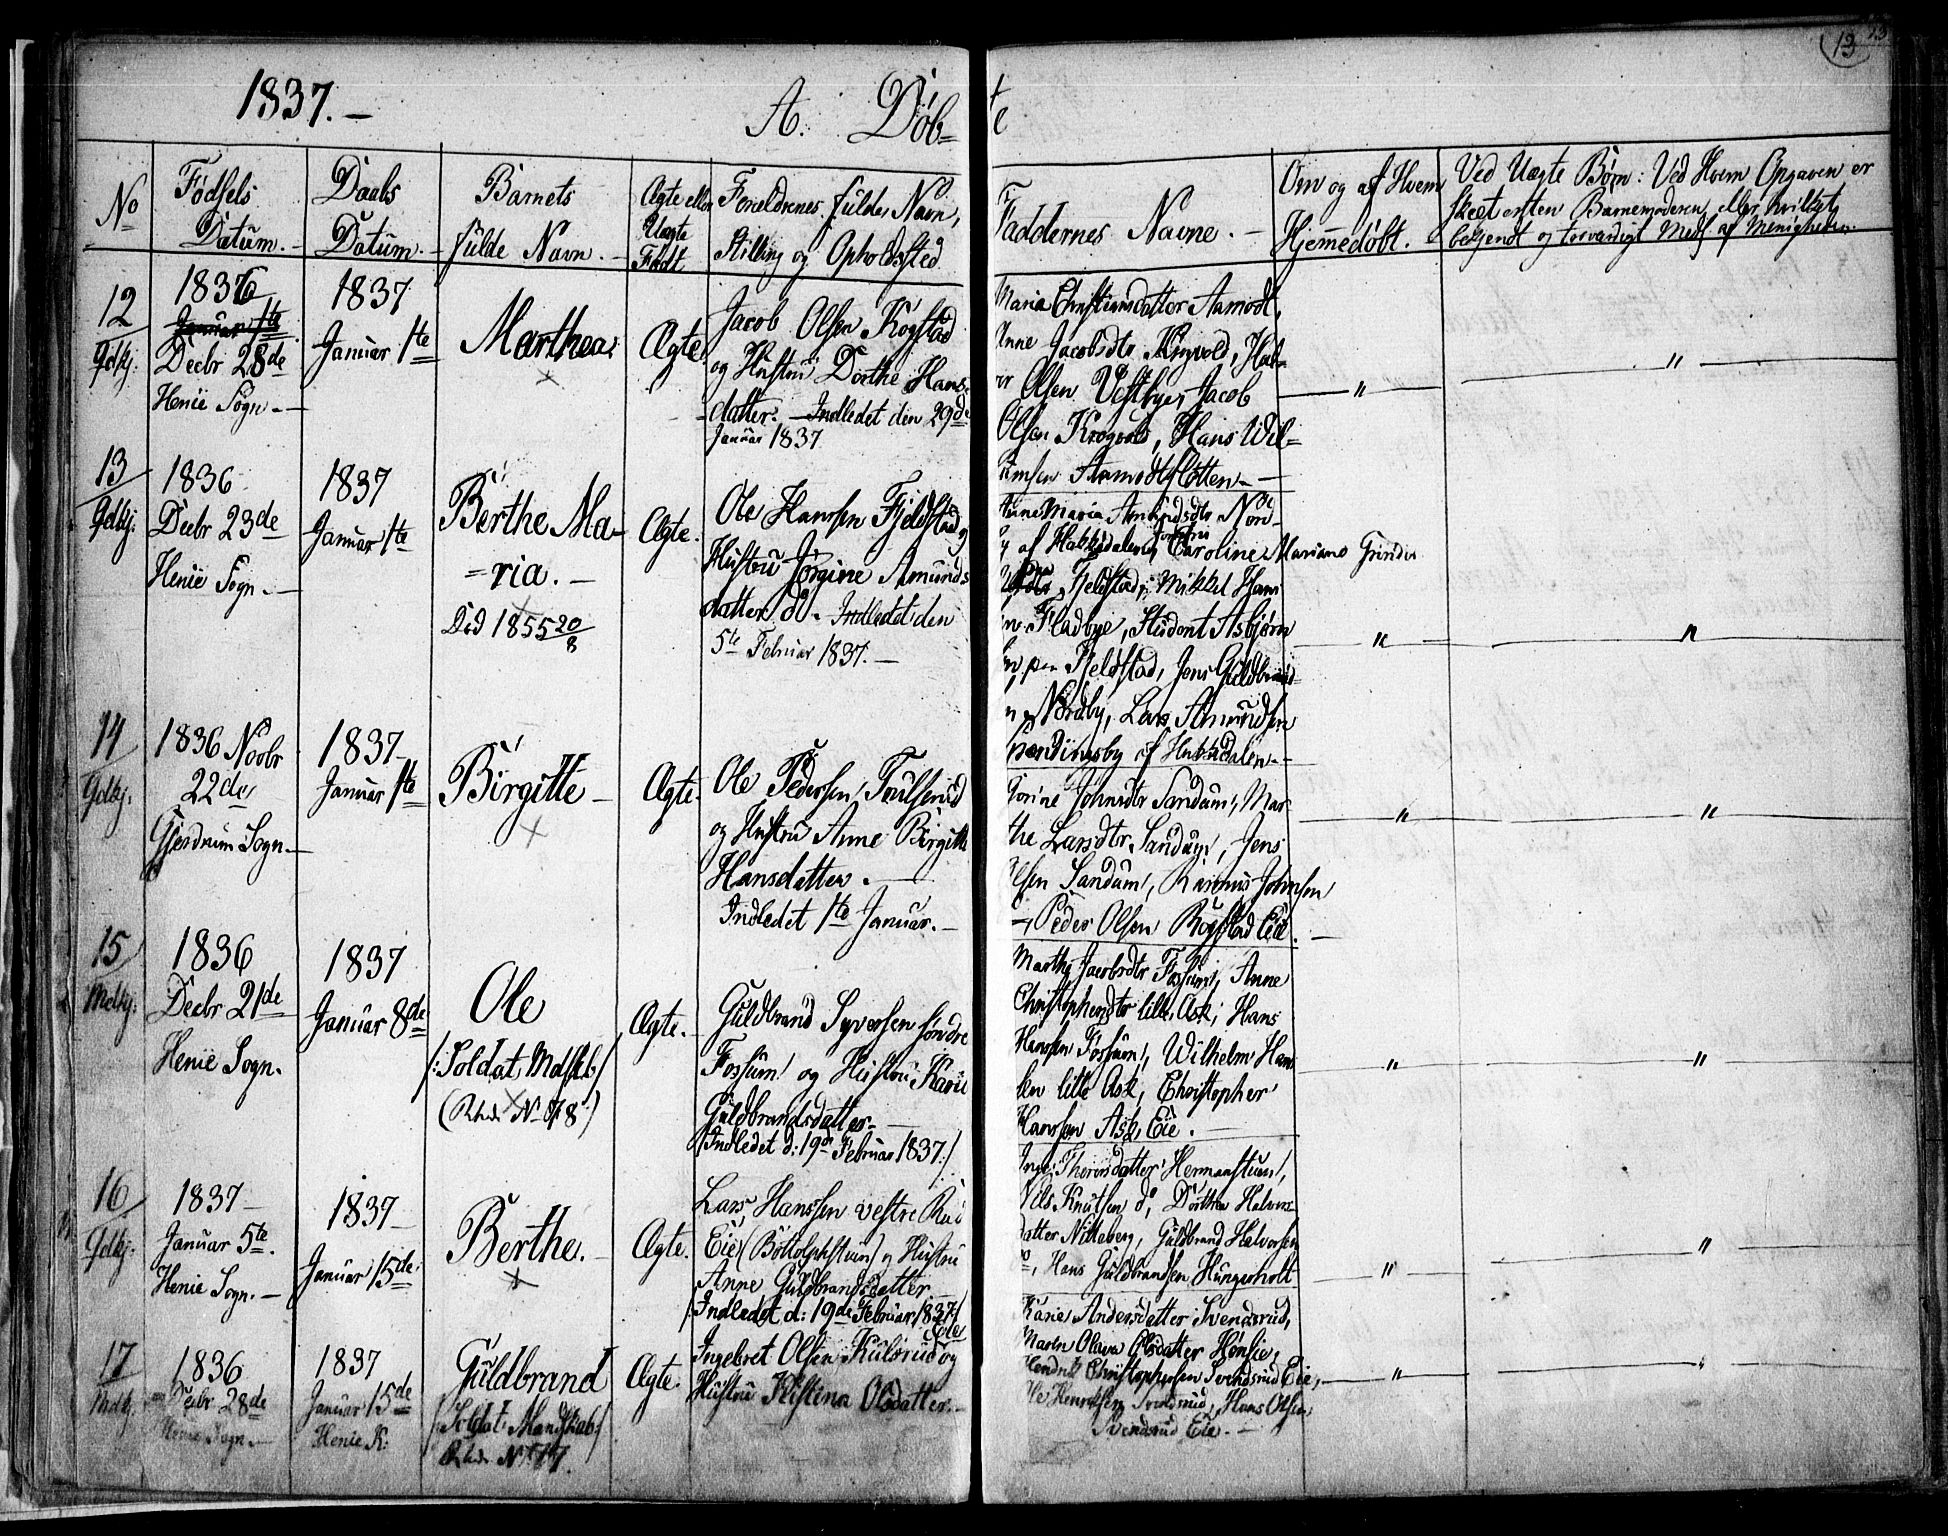 1837.-
A. Døb-
te
13
No
Fødsels
Datum.-
Daabs
Datum.-
Barnets
fulde Navn.-
Ægte eller
Uægte
Født
Forældrenes fulde Navn,
Stilling og Opholdssted
Faddernes Navne.-
Om og af Hvem
Hjemmedøbt.
Ved Uægte Børn: Ved Hvem Opgaven er
skeet efter Barnemoderen, eller hvilket
12
Gdkj.
1836
Januar 1te
Decbr 28de
Henie Sogn.-
1837
Januar 1te
Marthea
Ægte
Jacob Olsen Kogstad
og Hustru Dorthe Hans-
datter.- Indledet den 29de
Januar 1837
Maria Christiansdatter Aamodt,
Anne Jacobsdtr
Olsen Vestbye, Jacob
Olsen Krogvold, Hans Wil-
Aamodtslotten.-
"
"
13
Gdkj.
1836
Decbr 23de
Henie Sogn.-
1837
Januar 1te
Berthe Ma-
=ria.-
Død 1855 20/8
Ægte.
Ole Hanssen Fjeldstad og
Hustru Jørgine Amunds
datter do. Indledet den
5te Februar 1837.-
Anne Maria Amundsdtr Nord-
by af Hakkedalen, Jomfru Caroline Mariane
Fjeldstad, Mikkel Hans
Fladbye, Student Asbjørn
sen paa Fjeldstad, Jens Guldbrand-
n Nordby, Lars Amundsen
af Hakkedalen.-
"
"
14
Gdkj.
1836 Novbr
22de
Gjerdrum Sogn.-
1837
Januar 1te
Birgitte -
Ægte.
Ole Pedersen
og Hustru Anne Birgitte
Hansdatter.-
Indledet 1te Januar.-
Johnsdtr Sandum, Mar-
the Larsdtr Sandum, Jens
Olsen Sandum, Rasmus Johnsen
-, Peder Olsen Rogstad Eie.
"
"
15
Medkj.
1836
Decbr 21de
Henie Sogn.
1837
Januar 8de
Ole
/: Soldat, Mdskb/
(Rhde No 678)
Ægte.
Guldbrand Syversen søndre
Fossum og Hustru Karie
Guldbrandsdatter.-
/Indledet d: 19de Februar 1837:/
Marthe Jacobsdtr Fossum, Anne
Christophersdtr lille Ask, Hans
Hanssen Fossum, Wilhelm Hans
sen lille Ask, Christopher
Hanssen Ask Eie.
"
"
16
Gdkj.
1837-
Januar 5te.
Henie Sogn.-
1837-
Januar 15de
Berthe.-
Ægte.
Lars Hanssen vestre Rud
Eie (Bottolphstuen) og Hustru
Anne Guldbrandsdatter
/Indledet d: 19de Februar 1837:/
Inge Thoresdatter Hermanstuen,
Nils Knutsen do, Dorthea Halvors
datter Nitteberg, Guldbrand Halvorsen
do, Hans Guldbrandsen Hungerholt
"
"
17
Medkj.
1836
Decbr 28de
Henie Sogn.-
1837
Januar 15de
Henie K:
Guldbrand
/Soldat Mandskab/
Rhde No 677.
Ægte.
Ingebret Olsen Kulsrud Eie og
Hustru Kistina Olsdatter.-
Karie Andersdatter Svendsrud,
Maren Olava Olsdatter Hønsie,
Hendrik Christophersen Svendsrud Eie,
Ole Henriksen Svendsrud, Hans Olsen
Svendsrud Eie.-
"
"